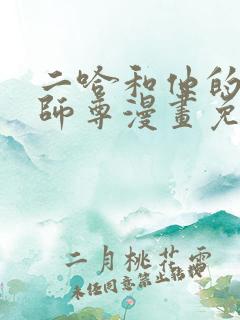 二哈和他的
師尊漫畫免
二月桃花雪
未經同意禁止轉載